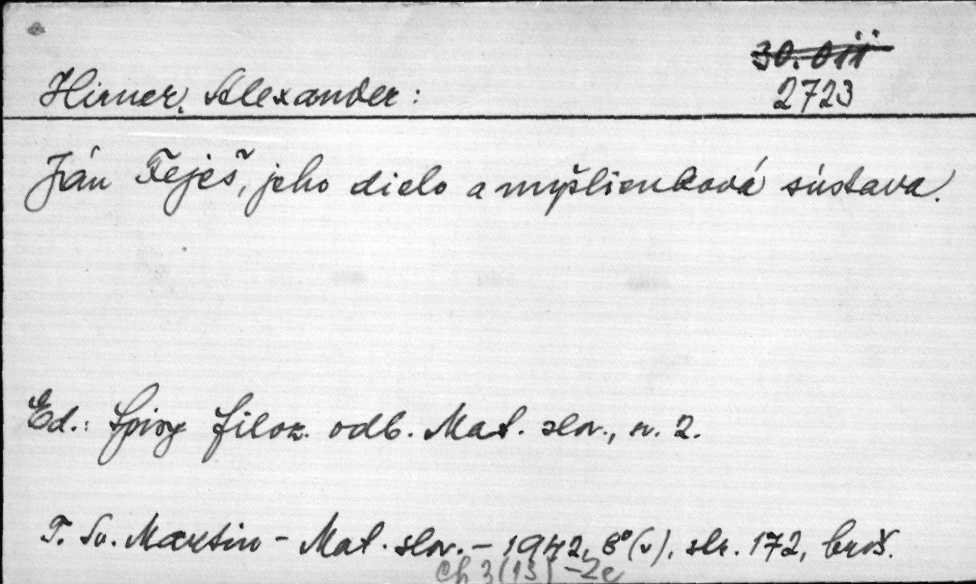 30.011
Hirner, Alexander:
2723
Ján Feješ, jeho dielo a myšlienková sústava.
Ed.: Spisy filoz. odb. Mat. slov., n. 2.
T. Sv. Martin - Mat. slov. - 1942, 8°(v), str. 172, brož.